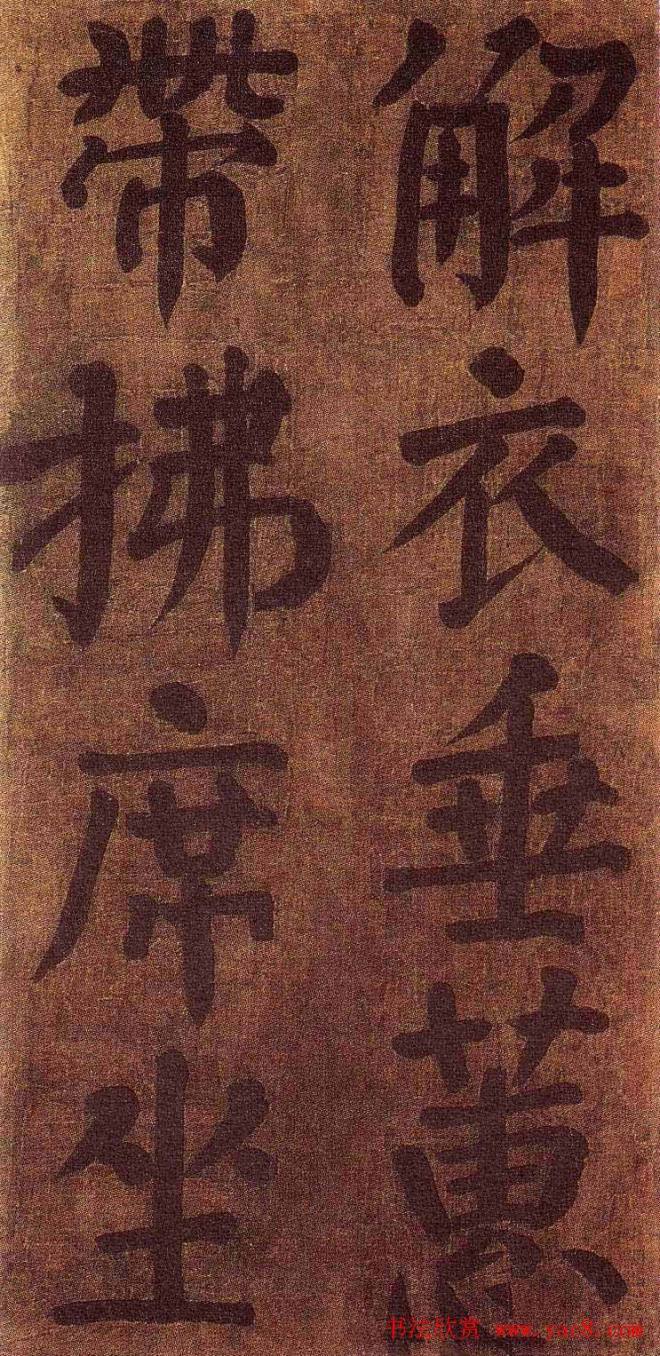 解衣垂蕙
帶拂席坐
书法欣赏 www.yac8.com